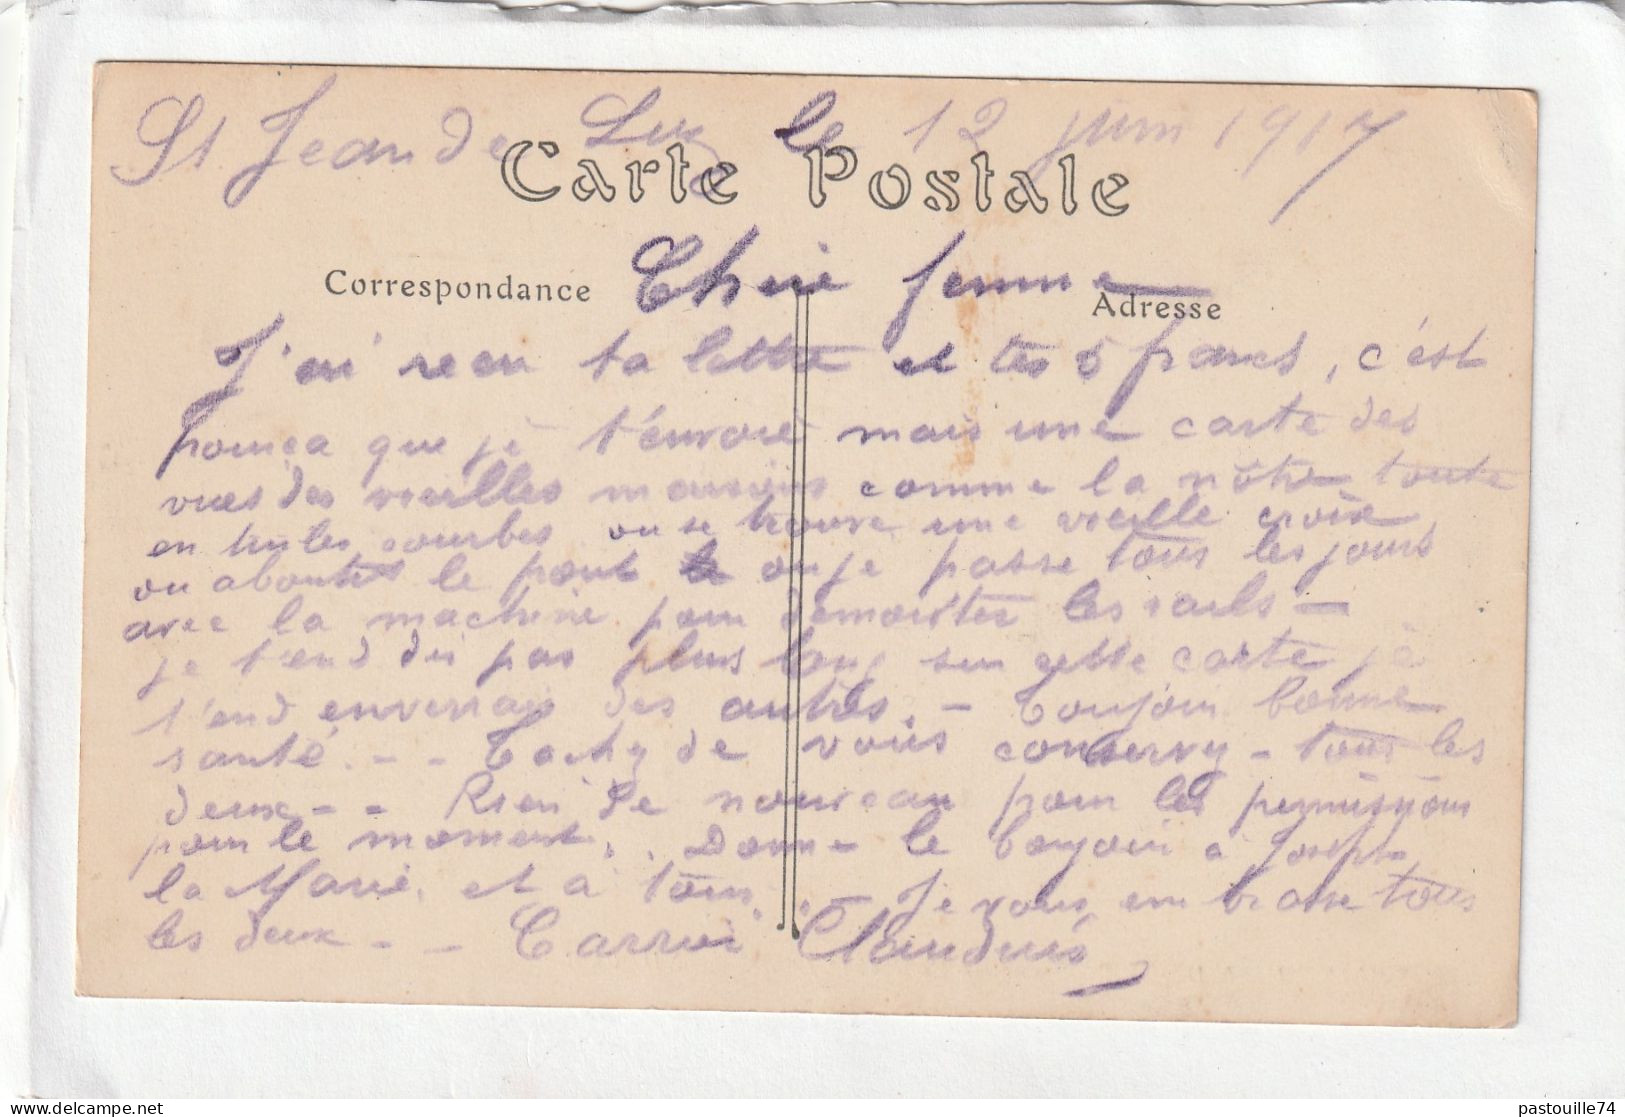 St Jean de Luz le 12 juin 1917
Carte Postale
Correspondance
Adresse
Chère femme
J'ai reçu ta lettre et tes 5 francs, c'est
pourça que je t'envoie mais une carte des
vues des vieilles maisons comme la nôtre toute
en tuiles courbes ou se trouve une vieille croix
ou aboutit le pont ou je passe tous les jours
avec la machine pour demonter les rails -
je t'end dis pas plus long sur cette carte je
t'end enverrais des autres. - Toujour bonne
santé. - - Tachy de vous conservy - tous les
deux - - Rien de nouveau pour les permisyons
pour le moment. . Donne le bonjour à Joseph
la Marie, et à tous. . - Je vous em brasse tous
les deux - - Claudius
pastouille74